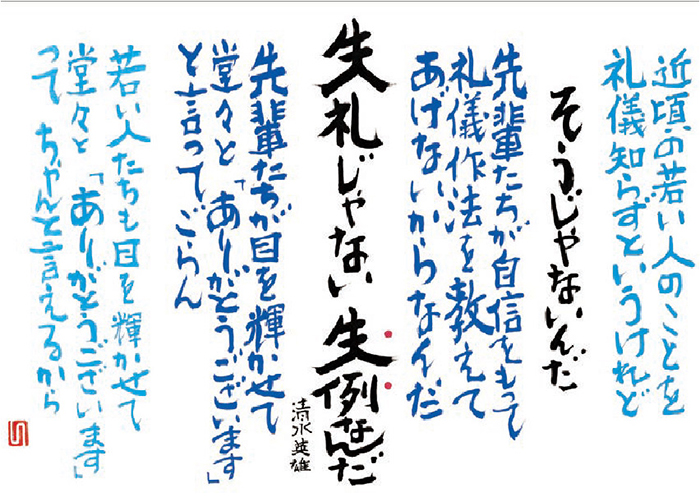 近頃の若い人のことを
礼儀知らずというけれど
そうじゃないんだ
先輩たちが自信をもって
礼儀作法を教えて
あげないからなんだ
失礼じゃない 生例なんだ
清水英雄
先輩たちが目を輝かせて
堂々と「ありがとうございます」
と言ってごらん
若い人たちも目を輝かせて
堂々と「ありがとうございます」
って ちゃんと言えるから